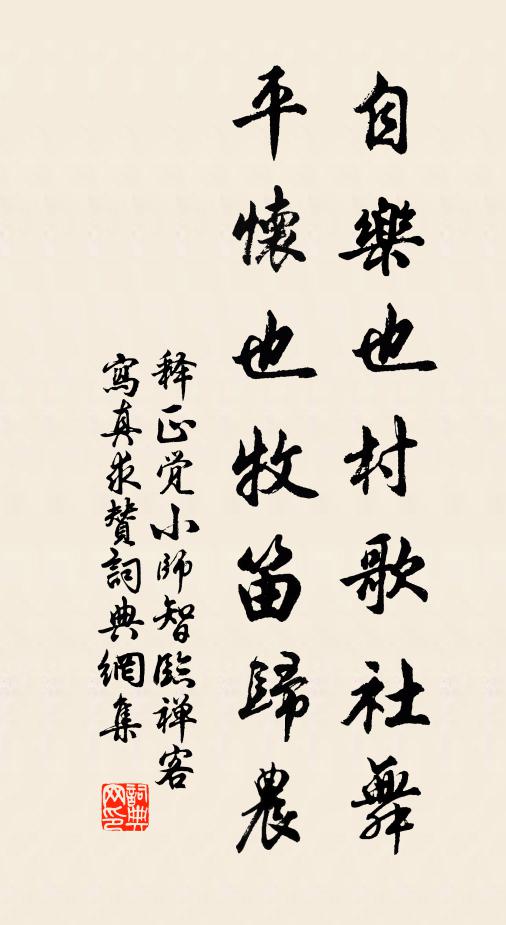 自樂也村歌社舞
平懷也牧笛歸農
释正觉小师智临禅客
寫真求贊詞典網集
詞典网印